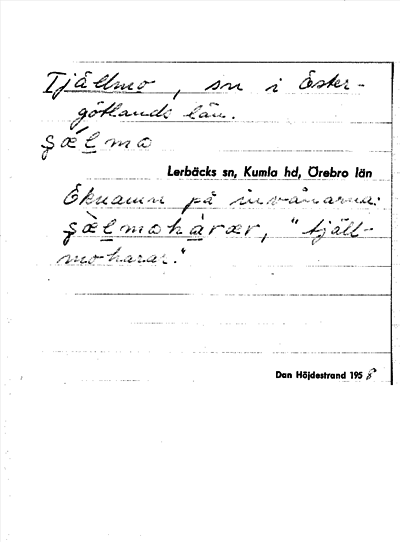 Tjällmo, sn i Öster-
götlands län.
ʂǽlmo
Lerbäcks sn, Kumla hd, Örebro län
Öknamn på invånarna:
ʂæ̀lmohàrær, "tjäll-
moharar."
Dan Höjdestrand 1958